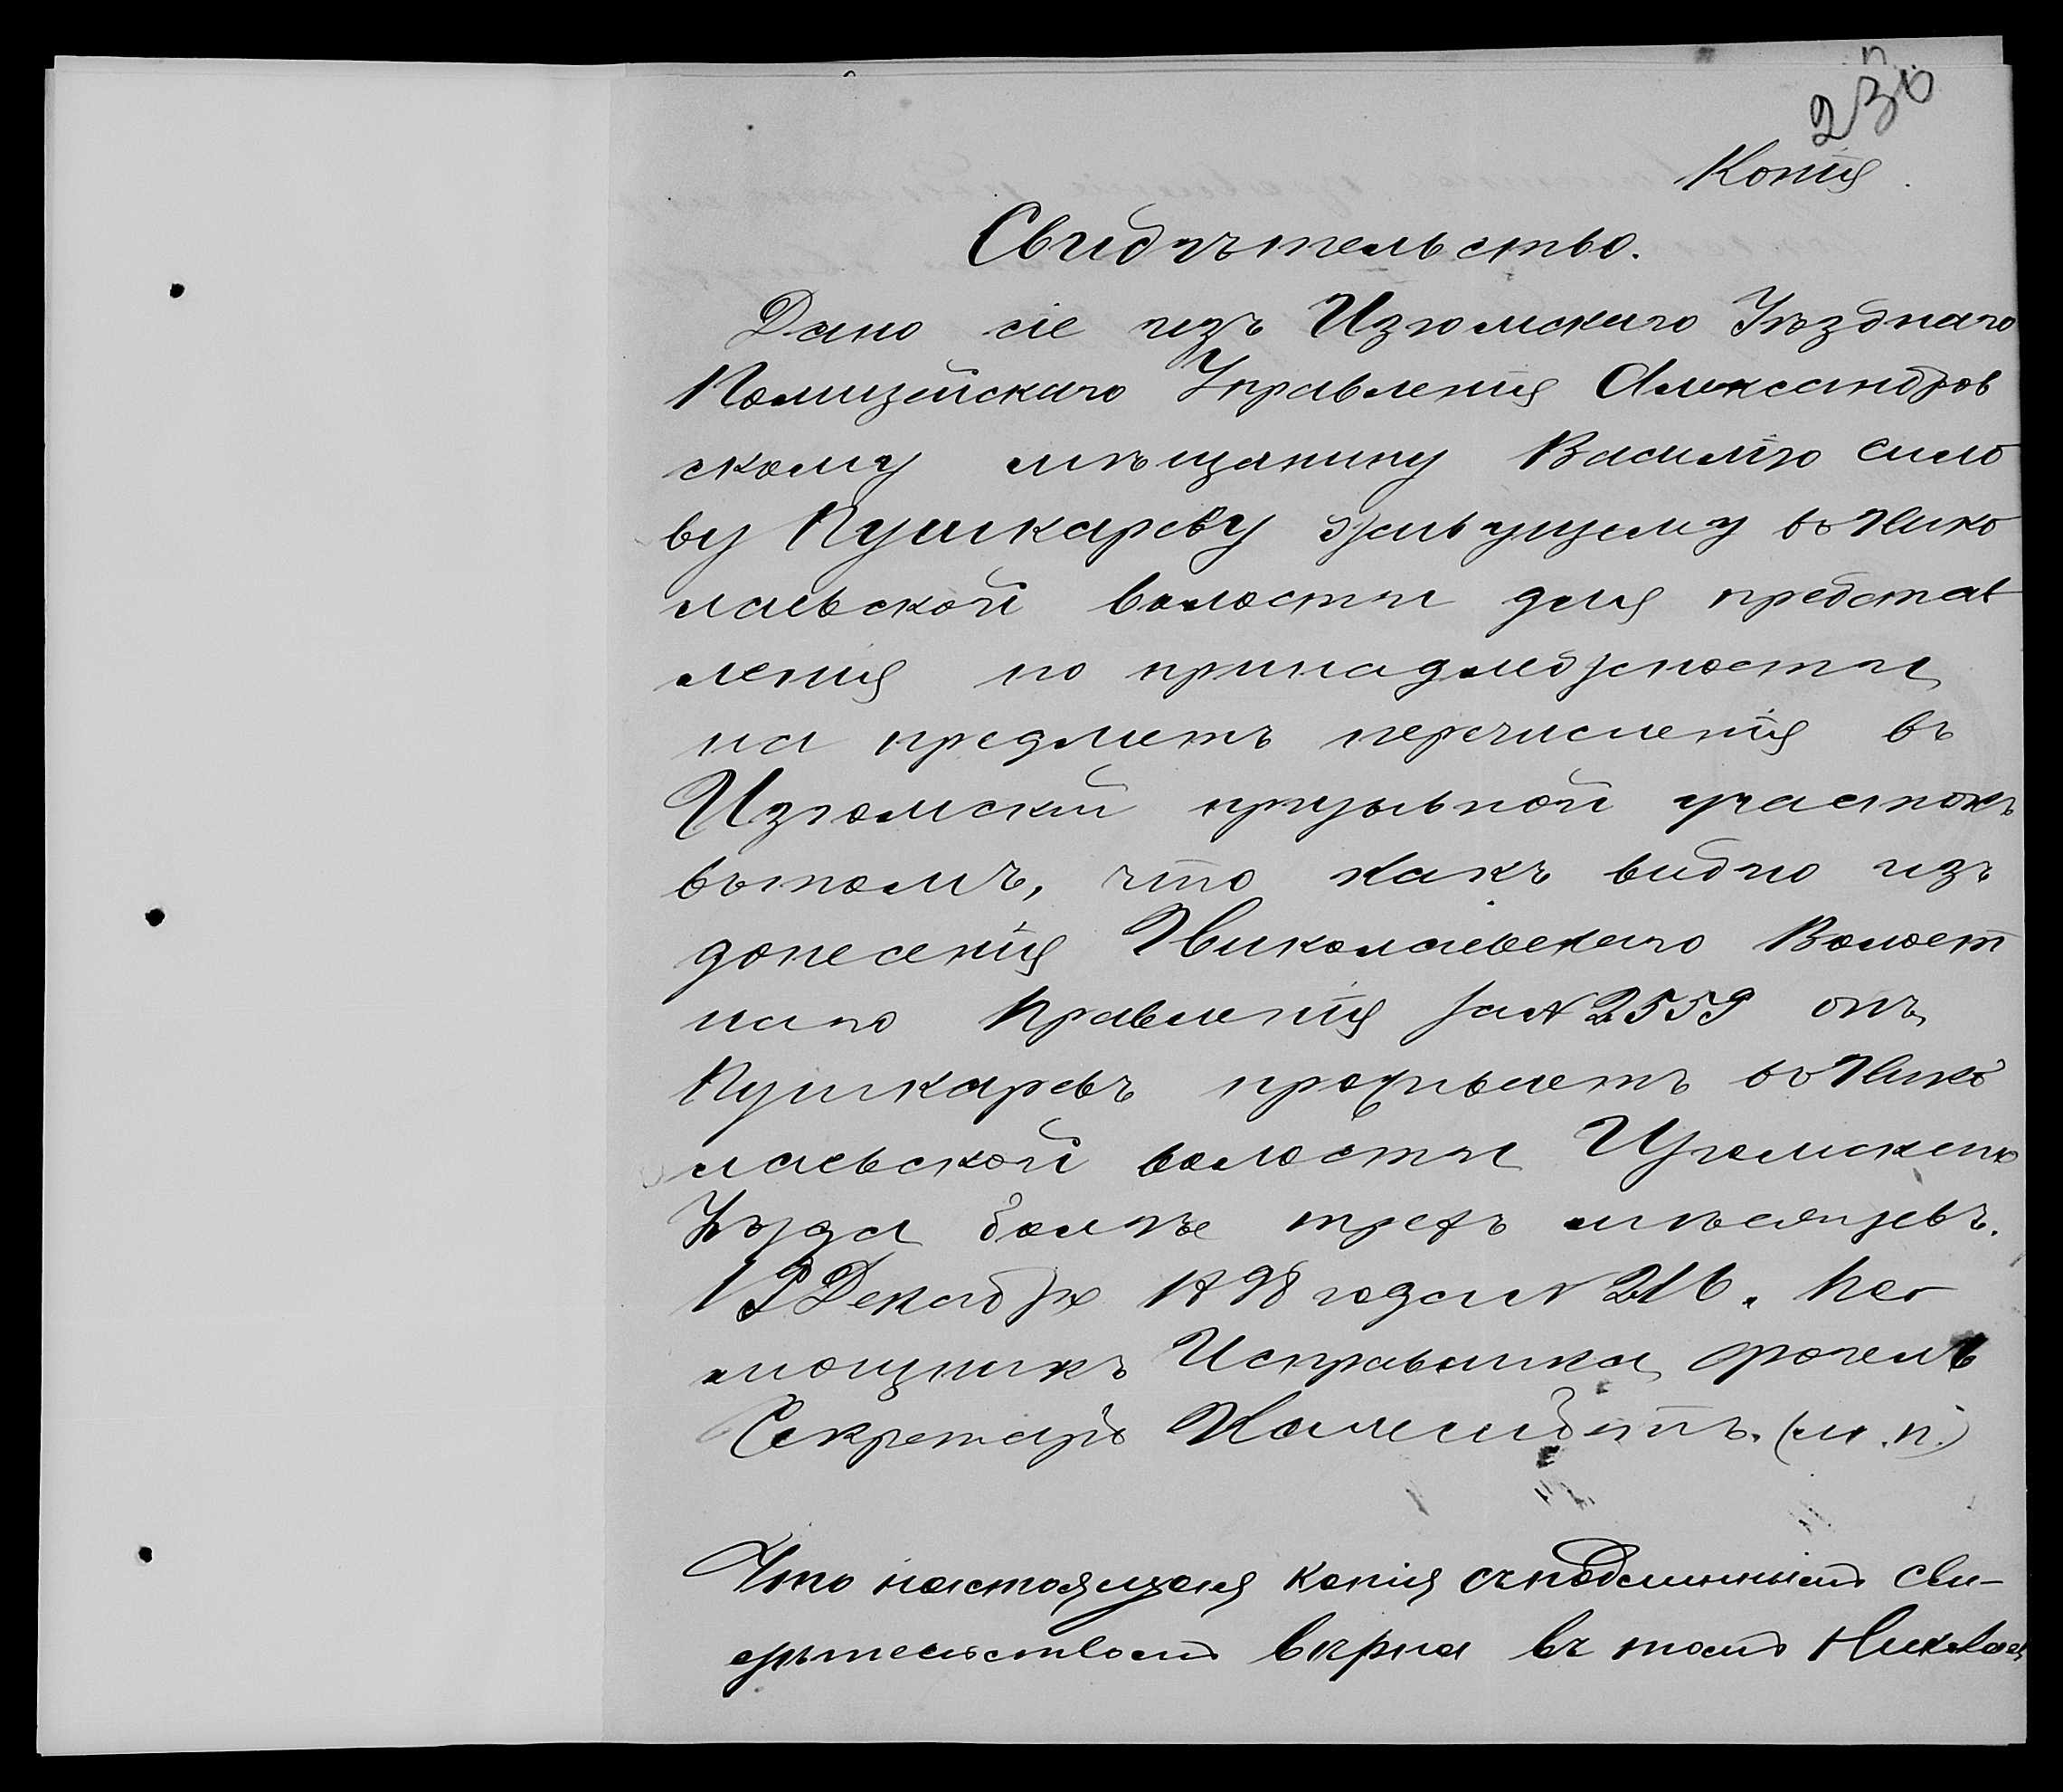 230
Копія.
Свидѣтельство.
Дано сіе изъ Изюмскаго Уѣзднаго
Полицейскаго Управленія Александров
скому мѣщанину Василію Сило
ву Пушкареву живущему въ Нико
лаевской волости для представ
ленія по принадлежности
на предметъ перечисленія въ
Изюмскій призывной участокъ
вътомъ, что какъ видно изъ
донесенія Николаевскаго Волост
наго Правленія за № 2559 онъ
Пушкаревъ проживаетъ въ Нико
лаевской волости Изюмскаго
Уѣзда болѣе трехъ мѣсяцевъ.
19 Декабря 1898 года № 216. По
мощникъ Исправника
Секретарь (м.п.)
Что настоящая копія съподлиннымъ сви-
дѣтельствомъ вѣрна въ томъ Николаев